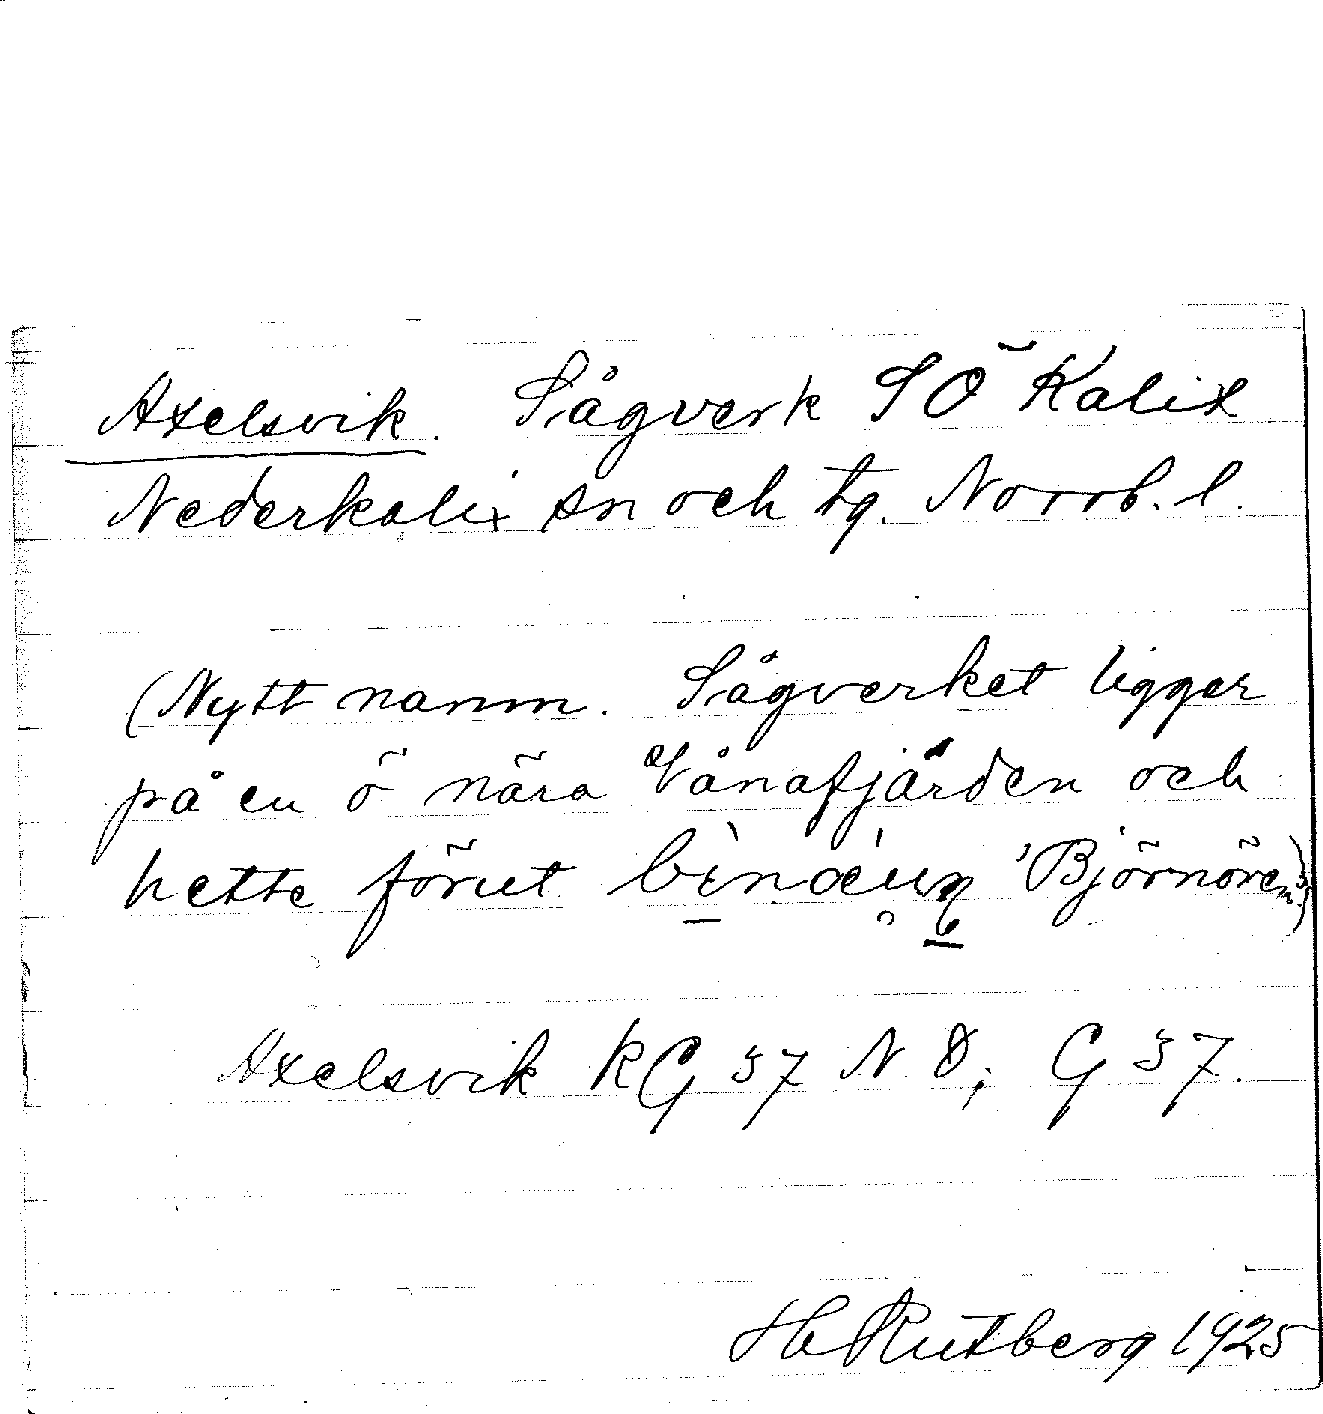 Axelsvik. Sågverk SÖ Kalix
Nederkalix sn och tg. Norrb. l.
(Nytt namn. Sågverket ligger
på en ö nära Vånafjärden och
hette förut 'Björnören')
Axelsvik KG 37 NO; G 37.
H Rutberg 1925